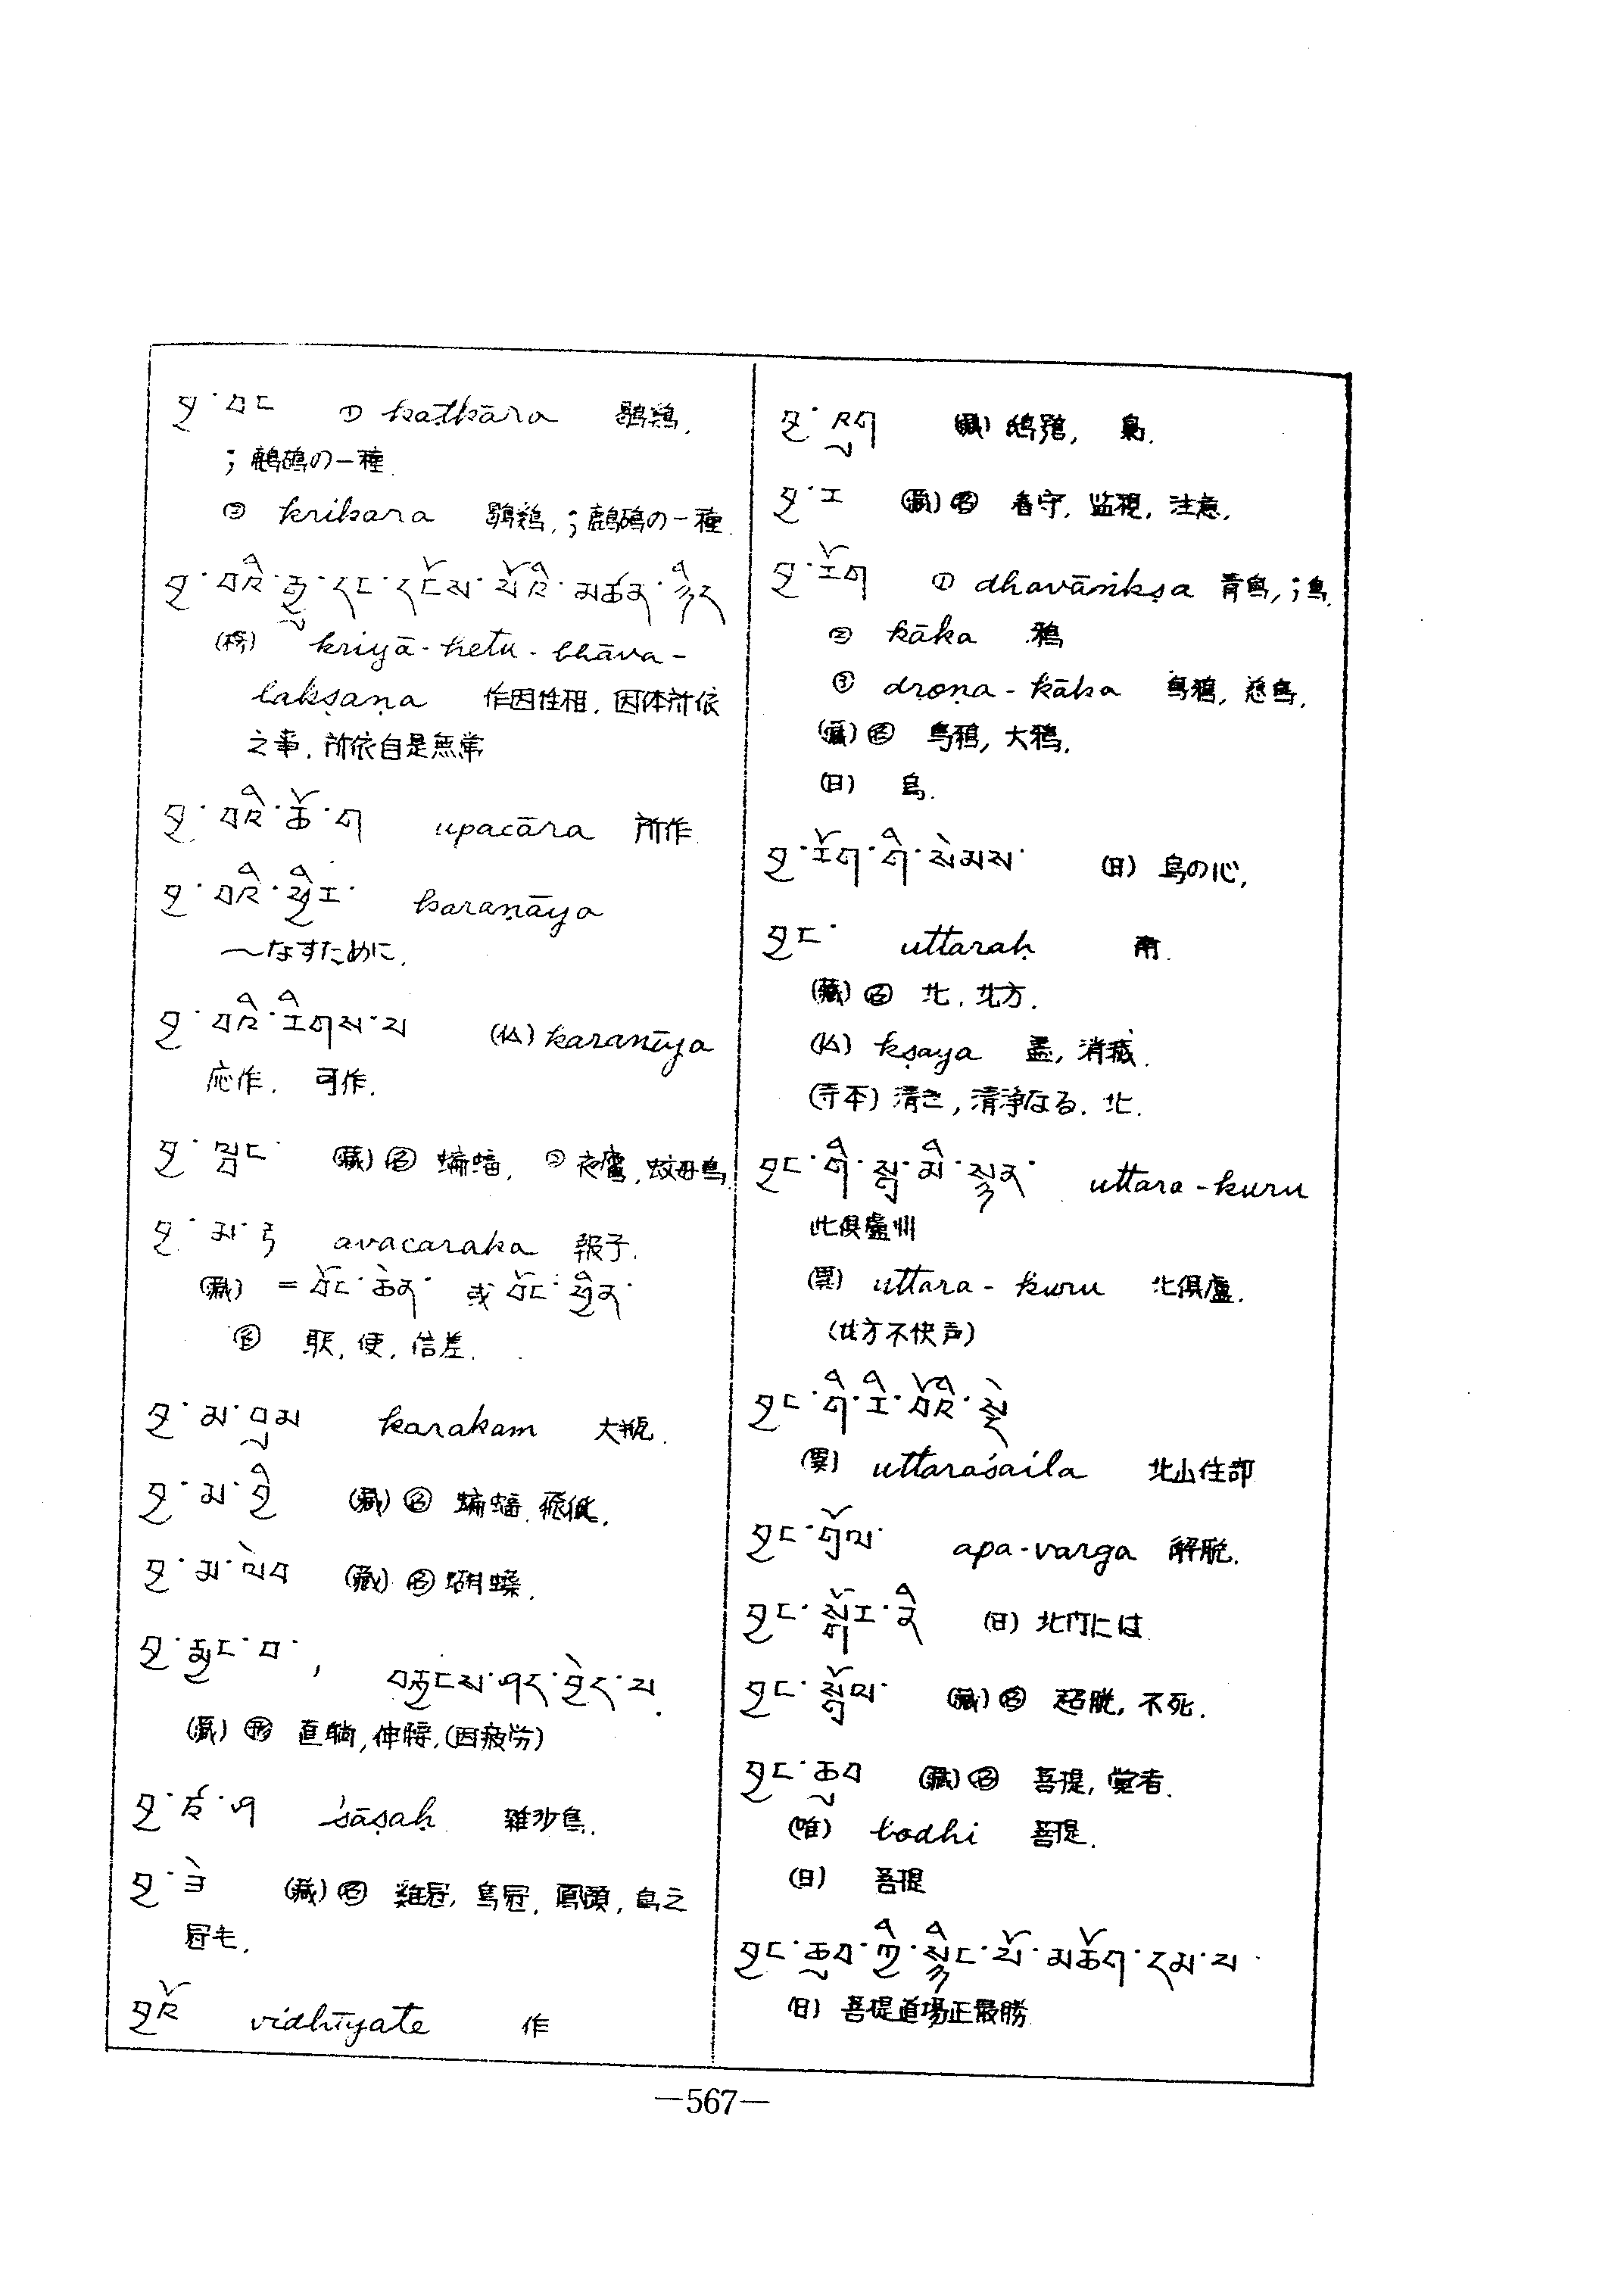 བྱ་བང ① kaṭkāra 鶡鶏.
; 鷓鴣の一種
② krikara 鶡鶏, ; 鷓鴣の一種.
བྱ་བའི་རྒྱུ་དང་དངོས་པོའི་མཚན་ཉིད
kriyā-hetu-bhāva-
lakṣaṇa 作因性相, 因体所依
之事, 所依自是無常
བྱ་བའི་ཆོ་ག upacāra 所作
བྱ་བའི་ཕྱིར་ karaṇāya
〜なすために.
བྱ་བའི་རིགས་པ (仏) karanīya
応作. 可作.
བྱ་ (藏) 名 蝙蝠, ② 夜鷹, 蚊母鳥.
བྱ་མ་ཏ avacaraka 報子.
(藏) = བོང་ཆེན་ 或
名 駅, 使, 信差.
བྱ་མ་བུམ karakam 大瓶.
བྱ་མ་བྱི (藏) 名 蝙蝠
བྱ་མ་ལེབ (藏) 名 蝴蝶.
བྱ་རྨྱང་བ་,
(藏) 形 直躺, 伸腰, (因疲労)
བྱ་ཤ śāṣaḥ 雑沙鳥.
བྱ་ཟེ (藏) 名 雞冠, 鳥冠, 鳳頭, 鳥之
冠毛.
བྱའོ vidhīyate 作
བྱ་འུག (藏) 鴟鵂, 梟.
བྱ་ར (藏) 名 看守, 监視, 注意.
བྱ་རོག ① dhavāṁkṣa 青鳥, ; 烏.
② kāka 鴉
③ drọṇa-kāka 烏鴉, 慈烏.
(藏) 名 烏鴉, 大鴉.
(日) 烏.
བྱ་རོག་གི་སེམས་ (日) 烏の心,
བྱང་ uttaraḥ 南.
(藏) 名 北, 北方.
(仏) kṣaya 盡, 消滅.
(寺本) 清き, 清浄なる. 北.
བྱང་གི་སྒྲ་མི་སྙན་ uttara-kuru
北倶盧州
uttara-kuru 北倶盧.
(北方不快声)
བྱང་གི་རི་བོའི་སྡེ
uttaraśaila 北山住部
བྱང་གྲོལ་ apa-varga 解脱.
བྱང་སྒོར་ནི (日) 北門には
བྱང་སྒྲོལ་ (藏) 名 超脱, 不死.
བྱང་ཆུབ (藏) 名 菩提, 覚者.
(唯) bodhi 菩提.
(日) 菩提
བྱང་ཆུབ་ཀྱི་སྙིང་པོ་མཆོག་དམ་པ་
(日) 菩提道場正最勝
—567—